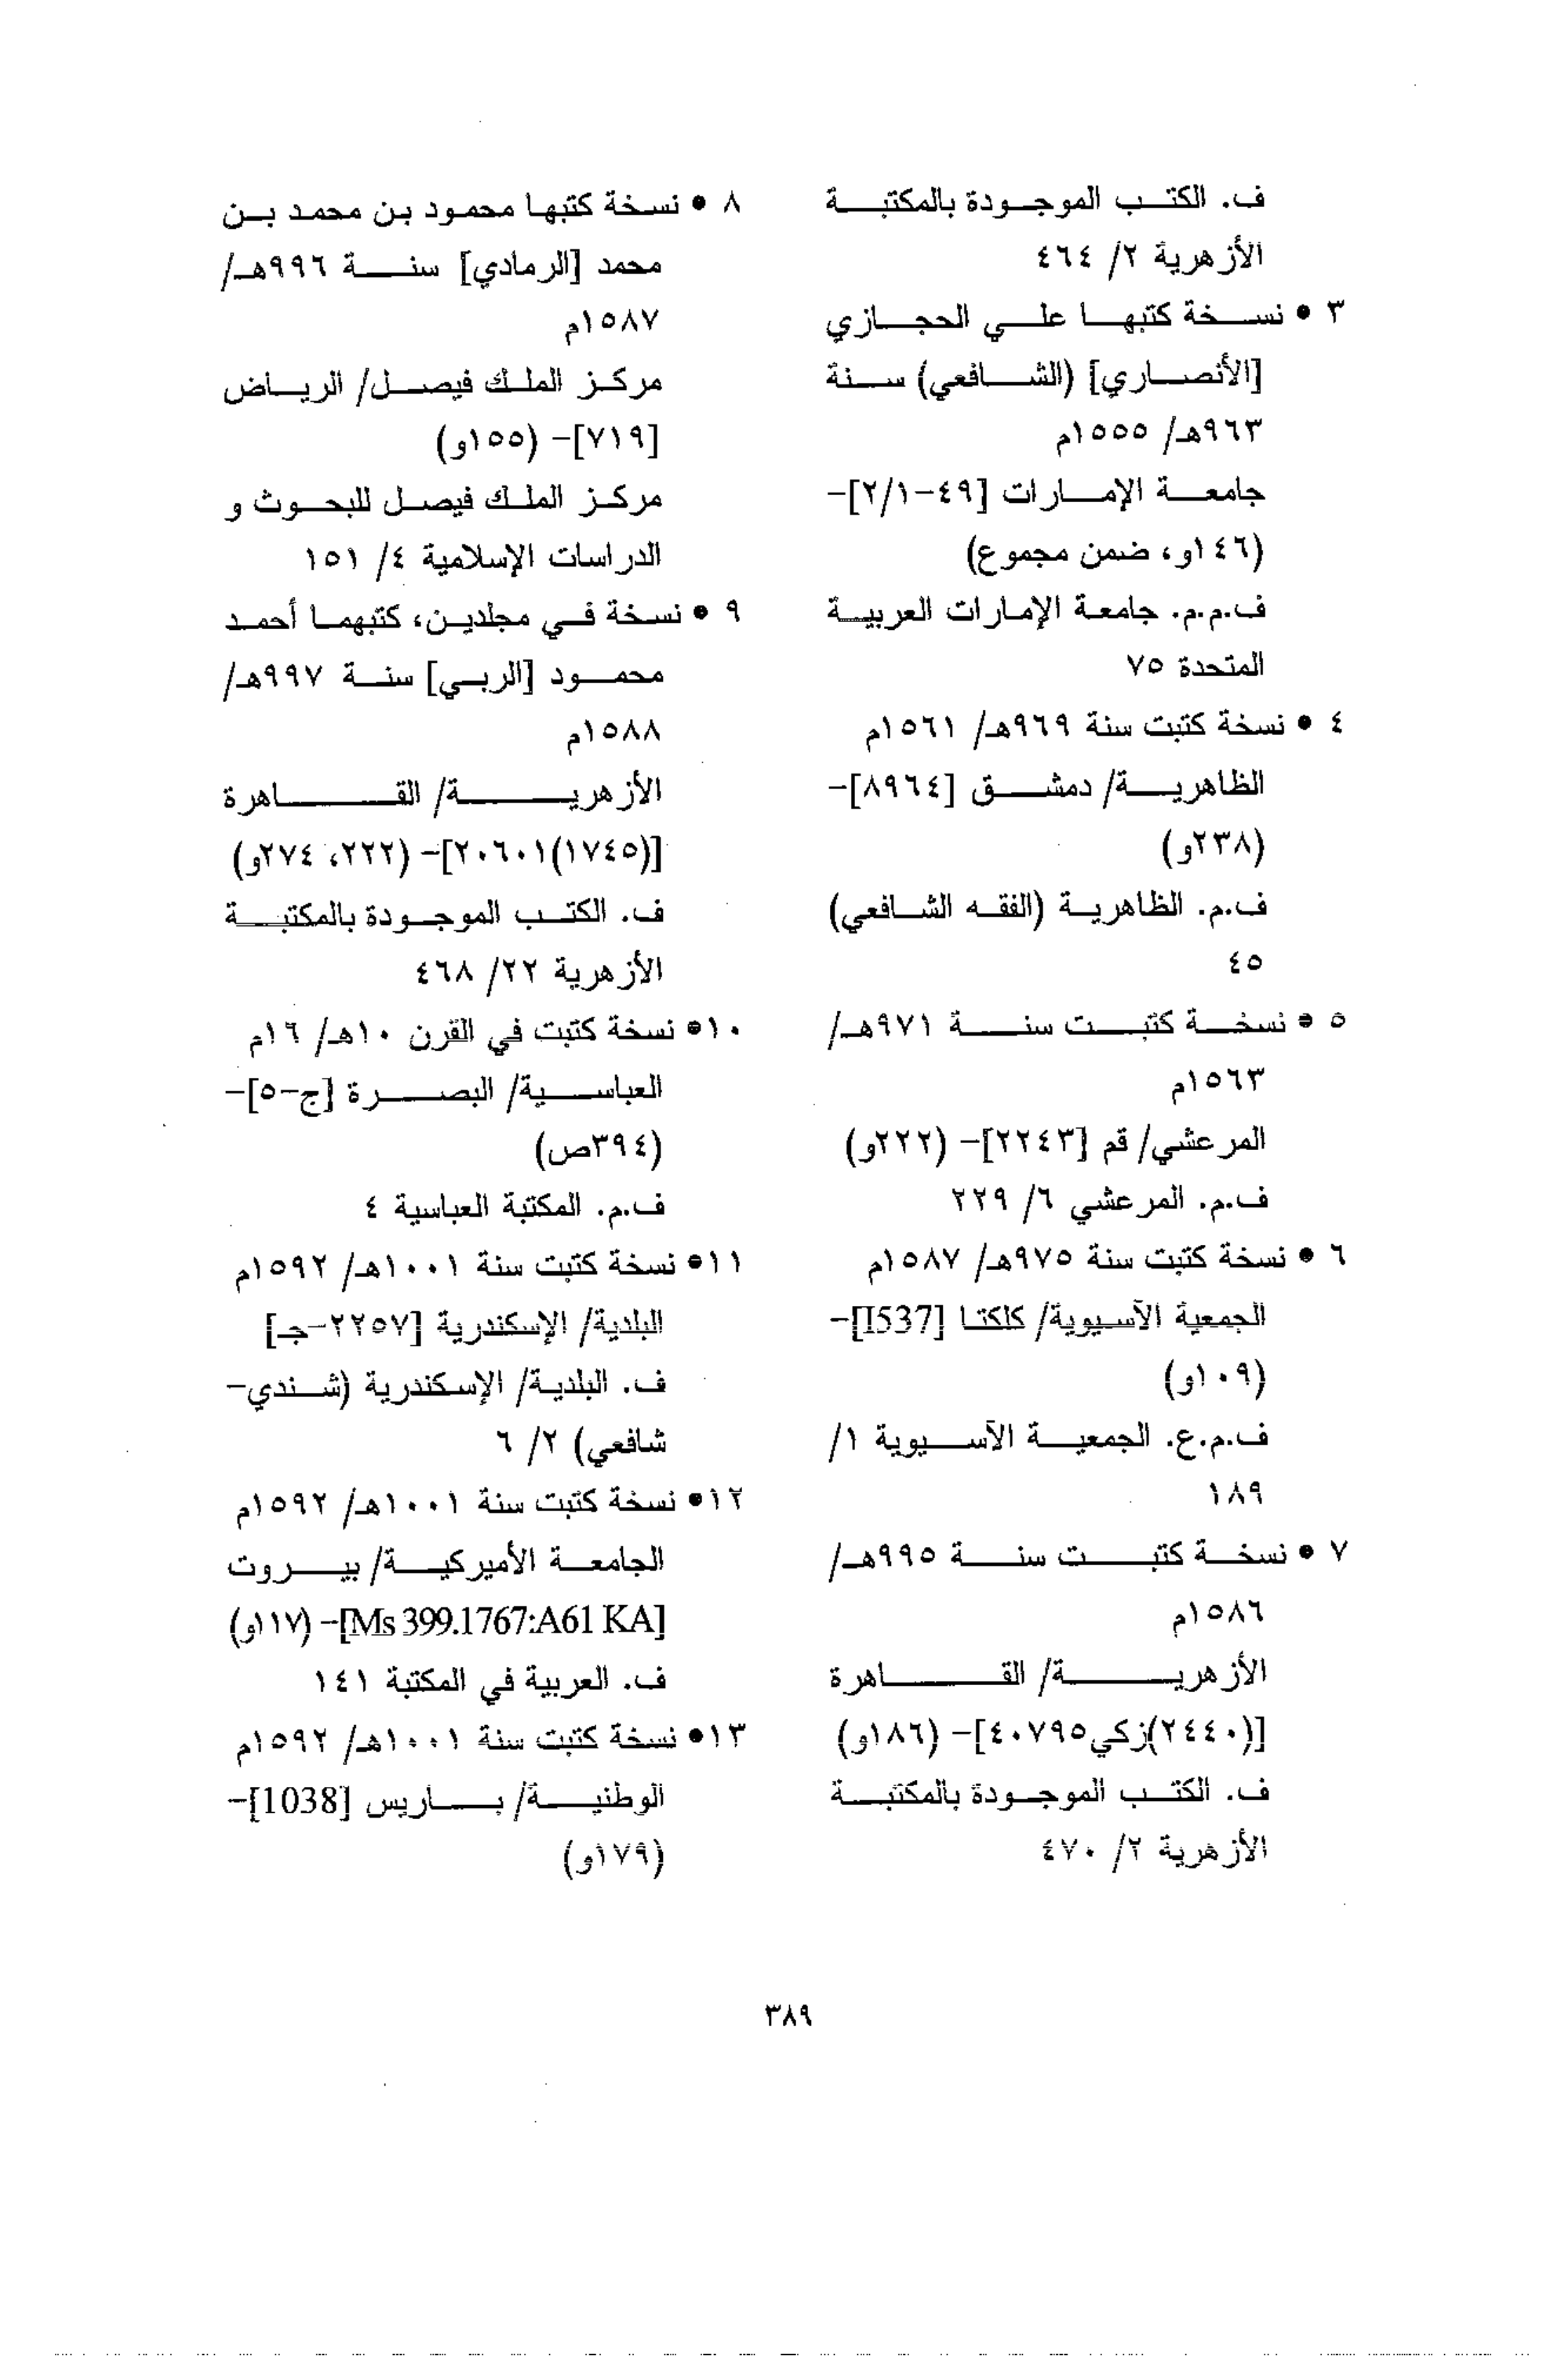 ف. الكتب الموجودة بالمكتبة
الأزهرية ٢/ ٤٦٤
٣ • نسخة كتبها علي الحجازي
[الأنصاري] (الشافعي) سنة
٩٦٣هـ/ ١٥٥٥م
جامعة الإمارات [٤٩-٢/١]-
(١٤٦و، ضمن مجموع)
ف.م.م. جامعة الإمارات العربية
المتحدة ٧٥
٤ • نسخة كتبت سنة ٩٦٩هـ/ ١٥٦١م
الظاهرية/ دمشق [٨٩٦٤]-
(٢٣٨و)
ف.م. الظاهرية (الفقه الشافعي)
٤٥
٥ • نسخة كتبت سنة ٩٧١هـ/
١٥٦٣م
المرعشي/ قم [٢٢٤٣]- (٢٢٢و)
ف.م. المرعشي ٦/ ٢٢٩
٦ • نسخة كتبت سنة ٩٧٥هـ/ ١٥٨٧م
الجمعية الآسيوية/ كلكتا [I537]-
(١٠٩و)
ف.م.ع. الجمعية الآسيوية ١/
١٨٩
٧ • نسخة كتبت سنة ٩٩٥هـ/
١٥٨٦م
الأزهرية/ القاهرة
[(٢٤٤٠)زكي٤٠٧٩٥]- (١٨٦و)
ف. الكتب الموجودة بالمكتبة
الأزهرية ٢/ ٤٧٠
٨ • نسخة كتبها محمود بن محمد بن
محمد [الرمادي] سنة ٩٩٦هـ/
١٥٨٧م
مركز الملك فيصل/ الرياض
[٧١٩]- (١٥٥و)
مركز الملك فيصل للبحوث و
الدراسات الإسلامية ٤/ ١٥١
٩ • نسخة في مجلدين، كتبهما أحمد
محمود [الربي] سنة ٩٩٧هـ/
١٥٨٨م
الأزهرية/ القاهرة
[(١٧٤٥)٢٠٦٠١]- (٢٢٢، ٢٧٤و)
ف. الكتب الموجودة بالمكتبة
الأزهرية ٢٢/ ٤٦٨
١٠• نسخة كتبت في القرن ١٠هـ/ ١٦م
العباسية/ البصرة [ج-٥]-
(٣٩٤ص)
ف.م. المكتبة العباسية ٤
١١• نسخة كتبت سنة ١٠٠١هـ/ ١٥٩٢م
البلدية/ الإسكندرية [٢٢٥٧-جـ]
ف. البلدية/ الإسكندرية (شندي-
شافعي) ٢/ ٦
١٢• نسخة كتبت سنة ١٠٠١هـ/ ١٥٩٢م
الجامعة الأميركية/ بيروت
[Ms 399.1767:A61 KA]- (١١٧و)
ف. العربية في المكتبة ١٤١
١٣• نسخة كتبت سنة ١٠٠١هـ/ ١٥٩٢م
الوطنية/ باريس [1038]-
(١٧٩و)
٣٨٩